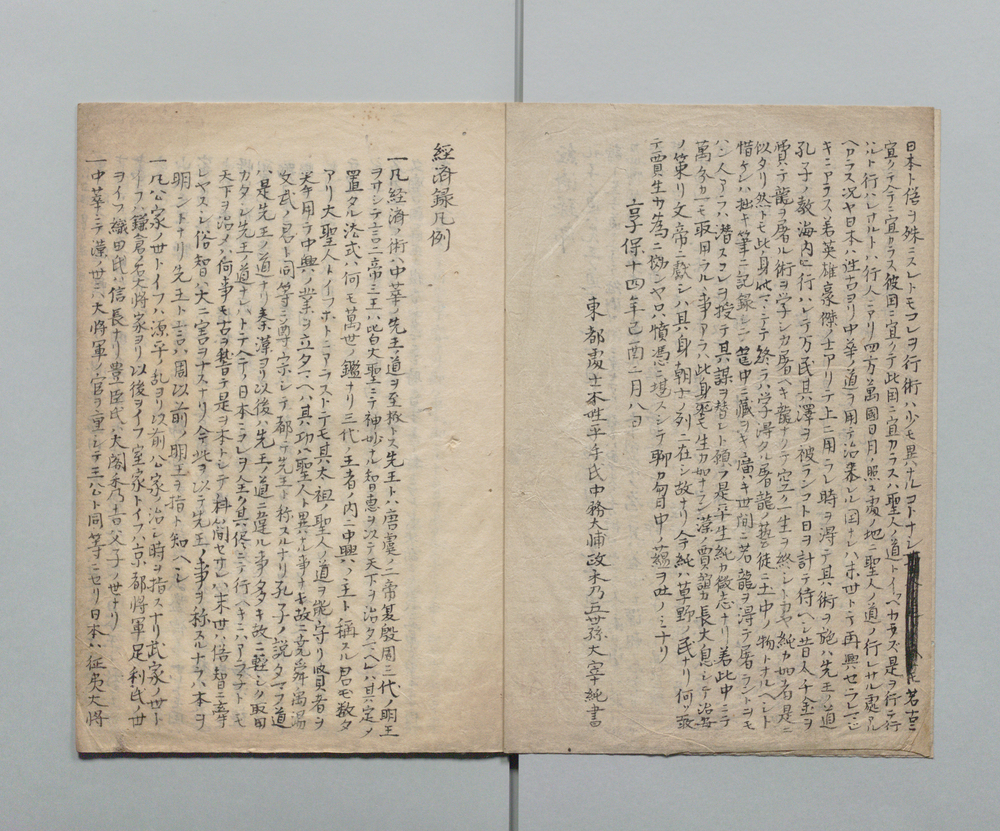 日本ト俗ヲ殊ニスレトモコレヲ行術ハ少モ異ハルコトナシ 若古ニ
宜クテ今ニ宜カラス彼国ニ宜クテ此国ニ宜カラスハ聖人ノ道トイフヘカラズ是ヲ行テ行
ハルト行ハレサルトハ行人ニアリ四方ノ萬國日月ノ照ス處ノ地ニ聖人ノ道ノ行レサル處アル
ヘカラス况ヤ日本ハ往古ヨリ中華ノ道ヲ用テ治来レル国ナレハ末世トテ再興セラレマシ
キニアラス若英雄豪傑ノ士アリテ上ニ用ラレ時ヲ得テ其ノ術ヲ施ハ先王ノ道
孔子ノ教海内ニ行ハレテ万民其ノ澤ヲ被ランコト日ヲ計テ待ヘシ昔人千金ヲ
費テ龍ヲ屠ル術ヲ学シカ屠ヘキ龍ナクテ空ク一生ヲ終シトカヤ純カ如キ者是ニ
似タリ然トモ此身此マヽニテ終ラハ学得タル屠龍ノ藝徒ニ土中ノ物トナルヘシト
惜ケレハ拙キ筆ニ記録シテ筐中ニ藏ヲキ廣キ世間ニ若龍ヲ得テ屠ラントヲモ
ハン人アラハ潜スコレヲ授テ其謀ヲ替レト願フ是平生純カ微志ナリ若此中ニテ
萬分カ一モ取用ラルヽ事アラハ此身死モ生カ如ナラン漢ノ賈誼カ長大息シテ治安
ノ策リ文帝ニ獻シハ其身朝士ノ列ニ在シ故ナリ今純ハ草野ノ民ナリ何ソ敢
テ賈生カ為ニ擬ンヤ只憤懣ニ堪スシテ聊カ匈中ノ蘊ヲ吐ノミナリ
享保十四年己酉二月八日
東都處士本姓平手氏中務大輔政木乃五世孫大宰純書
經済録凡例
一凡経済ノ術ハ中華ノ先王ノ道ヲ至極トス先王トハ唐虞ノ二帝夏殷周三代ノ明王
ヲサシテ言二帝三王ハ皆大聖ニテ神妙ナル智恵ヲ以テ天下ヲ治タマヘレハ其定メ
置タル法式ハ何モ萬世ノ鑑ナリ三代ノ王者ノ内ニ中興ノ主ト稱スル君モ数タ
アリ大聖人トイフホトニアラストテモ其太祖ノ聖人ノ道ヲ能守リ賢者ヲ
挙用テ中興ノ業ヲ立タマヘハ其功ハ聖人ト異ハル事ナキ故ニ堯舜禹湯
文武ノ君ト同等ニ尊宗シテ都テ先王ト称スルナリ孔子ノ説タマフ道
ハ是先王ノ道ナリ秦漢ヨリ以後ハ先王ノ道ニ違ル事多キ故ニ輕シク取用
カタシ先王ノ道ナレハトテ今ノ日本ニコレヲ全ク其侭ニテ行ヘキニハアラネトモ
天下ヲ治メハ何事モ古ヲ替テ是ヲ本トシテ料簡セサレハ末世ハ俗智ニ惑サ
レヤスシ俗智ハ大ニ害ヲナスナリ今此ヲ以テ先王ノ事ヲ称スルナラハ本ヲ
明ントナリ先王ト言ハ周以前ノ明王ヲ指ト知ヘシ
一凡公家ノ世トイフハ源平ノ乱ヨリ以前ノ公家ノ治シ時ヲ指スナリ武家ノ世ト
イフハ鎌倉右大将家ヨリ以後ヲイフ室家トイフハ京都将軍足利氏ノ世
ヲイフ織田氏ハ信長ナリ豊臣氏ハ大閤秀吉父子ノ世ナリ
一中華ニテ漢世ニハ大将軍ノ官ヲ重ンシテ三公ト同等ニセリ日本ハ征夷大将